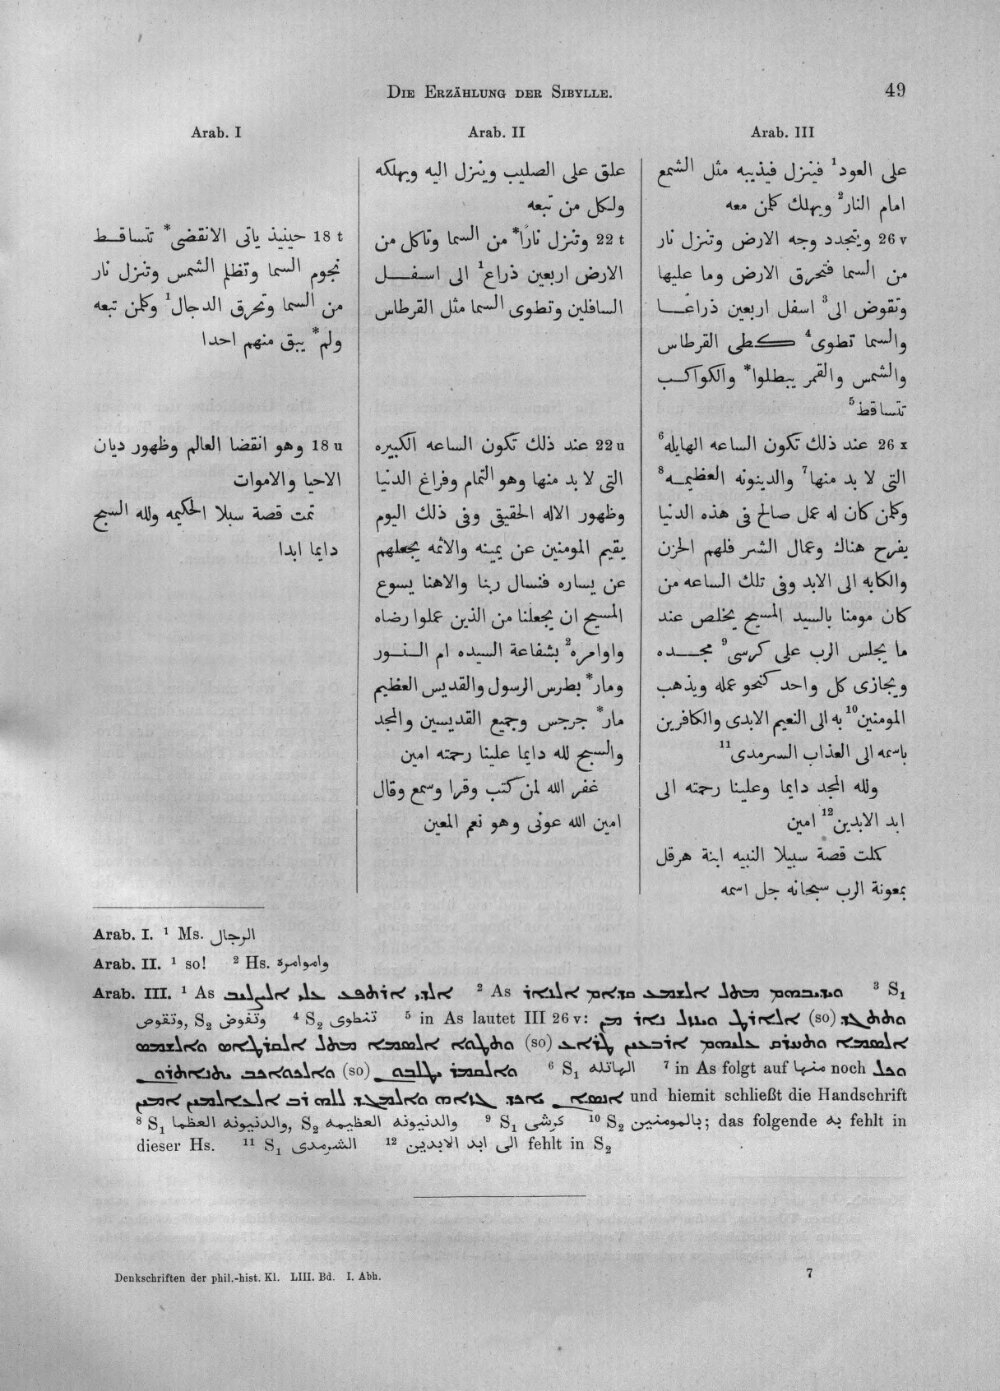 DIE ERZÄHLUNG DER SIBYLLE.
49
Arab. I
18 t حينيذ ياتى الانقضى* تتساقط
نجوم السما وتظلم الشمس وتنزل نار
من السما وتحرق الدجال¹ وكلمن تبعه
ولم* يبق منهم احدا
18 u وهو انقضا العالم وظهور ديان
الاحيا والاموات
تمت قصة سبلا الحكيمه ولله السبح
دايما ابدا
Arab. II
علق على الصليب وينزل اليه ويهلكه
ولكل من تبعه
22 t وتنزل نارًا* من السما وتاكل من
الارض اربعين ذراع¹ الى اسفل
السافلين وتطوى السما مثل القرطاس
22 u عند ذلك تكون الساعه الكبيره
التى لا بد منها وهو التمام وفراغ الدنيا
وظهور الاله الحقيقى وفى ذلك اليوم
يقيم المومنين عن يمينه والائمه يجعلهم
عن يساره فنسال ربنا والاهنا يسوع
المسيح ان يجعلنا من الذين عملوا رضاه
واوامره² بشفاعة السيده ام النور
ومار* بطرس الرسول والقديس العظيم
مار* جرجس وجميع القديسين والمجد
والسبح لله دايما علينا رحمته امين
غفر الله لمن كتب وقرا وسمع وقال
امين الله عونى وهو نعم المعين
Arab. III
على العود¹ فينزل فيذيبه مثل الشمع
امام النار² ويهلك كلمن معه
26 v ويتجدد وجه الارض وتنزل نار
من السما فتحرق الارض وما عليها
وتقوض الى³ اسفل اربعين ذراعًا
والسما تطوى⁴ كطى القرطاس
والشمس والقمر يبطلوا* والكواكب
تتساقط⁵
26 x عند ذلك تكون الساعه الهايله⁶
التى لا بد منها⁷ والدينونه العظيمه⁸
وكلمن كان له عمل صالح فى هذه الدنيا
يفرح هناك وعمال الشر فلهم الحزن
والكابه الى الابد وفى تلك الساعه من
كان مومنا بالسيد المسيح يخلص عند
ما يجلس الرب على كرسى⁹ مجده
ويجازى كل واحد كنحو عمله ويذهب
المومنين¹⁰ به الى النعيم الابدى والكافرين
باسمه الى العذاب السرمدى¹¹
ولله المجد دايما وعلينا رحمته الى
ابد الابدين¹² امين
كملت قصة سبيلا النبيه ابنة هرقل
بمعونة الرب سبحانه جل اسمه
Arab. I. ¹ Ms. الرجال
Arab. II. ¹ so! ² Hs. واموامره
Arab. III. ¹ As ² As ³ S₁
وتقوص, S₂ وتفوض ⁴ S₂ تنطوى ⁵ in As lautet III 26 v: (so)
(so)
(so) ⁶ S₁ الهاتله ⁷ in As folgt auf منها noch
und hiemit schließt die Handschrift
⁸ S₁ والدنيونه العظما, S₂ والدنيونه العظيمه ⁹ S₁ كرشى ¹⁰ S₂ بالمومنين; das folgende به fehlt in
dieser Hs. ¹¹ S₁ الشرمدى ¹² الى ابد الابدين fehlt in S₂
Denkschriften der phil.-hist. Kl. LIII. Bd. I. Abh.
7